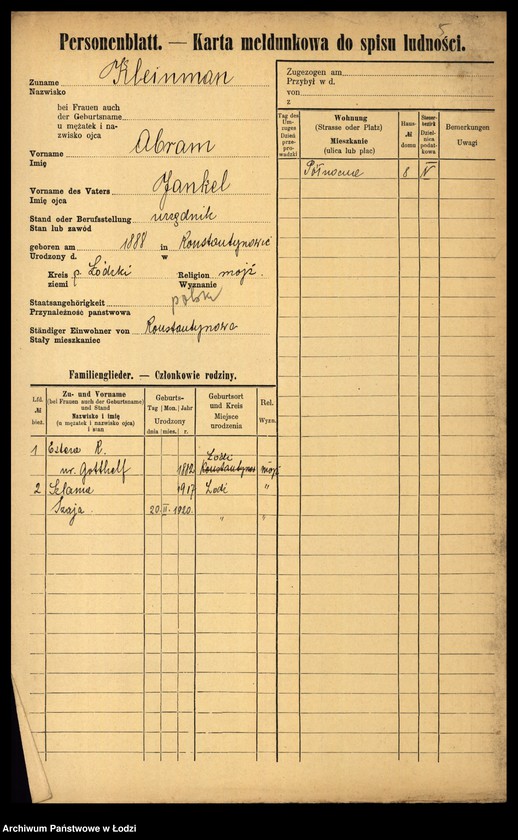 5
Personenblatt. — Karta meldunkowa do spisu ludności.
Zuname Kleinman
Nazwisko
bei Frauen auch
der Geburtsname
u mężatek i na-
zwisko ojca
Vorname Abram
Imię
Vorname des Vaters Jankel
Imię ojca
Stand oder Berufsstellung urzędnik
Stan lub zawód
geboren am 1888 in Konstantynowie
Urodzony d. w
Kreis p. Łódzki Religion mojż.
ziemi Wyznanie
Staatsangehörigkeit polski
Przynależność państwowa
Ständiger Einwohner von Konstantynowa
Stały mieszkaniec
Familienglieder. — Członkowie rodziny.
Lfd. № bież.
Zu- und Vorname
(bei Frauen auch der Geburtsname)
und Stand
Nazwisko i imię
(u mężatek i nazwisko ojca)
i stan
Geburts-
Tag Mon. Jahr
Urodzony
dnia mies. r.
Geburtsort
und Kreis
Miejsce
urodzenia
Rel.
Wyzn.
1 Estera R.
ur. Gotthelf 1892 Łódź Konstantynów mojż
2 Salama 1917 Łodź "
Szaja 20 II. 1920. " "
Zugezogen am
Przybył w d.
von
z
Tag des
Um-
zuges
Dzień
prze-
prowadzki
Wohnung
(Strasse oder Platz)
Mieszkanie
(ulica lub plac)
Haus-
№
domu
Steuer-
bezirk
Dziel-
nica
podat-
kowa
Bemerkungen
Uwagi
Północna 8 IV
Archiwum Państwowe w Łodzi